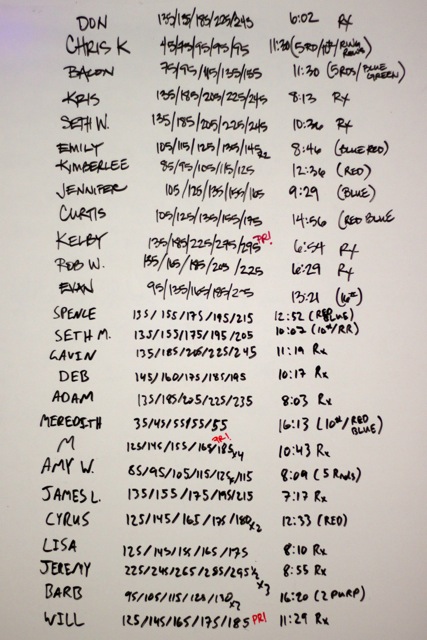 DON 135/155/185/225/245 6:02 Rx
CHRIS K 45/95/95/95/95 11:30 (5RD/10#/RING
BACON 75/95/115/135/155 11:30 (5RDS/BLUE GREEN)
KRIS 135/185/205/225/245 8:13 Rx
SETH W. 135/185/205/225/245 10:36 Rx
EMILY 105/115/125/135/145 x2 8:46 (BLUE RED)
KIMBERLEE 85/95/105/115/125 12:36 (RED)
JENNIFER 105/125/135/155/165 9:29 (BLUE)
CURTIS 105/125/135/155/175 14:56 (RED BLUE
KELBY 135/185/225/275/295 PR! 6:54 Rx
ROB W. 135/165/185/205/225 6:29 Rx
EVAN 95/135/165/185/205 13:21
SPENCE 135/155/175/195/215 12:52 (RED BLUE)
SETH M. 135/155/175/195/205 10:02 (10#/RR)
GAVIN 135/185/205/225/245 11:19 Rx
DEB 145/160/175/185/195 10:17 Rx
ADAM 135/185/205/225/235 8:03 Rx
MEREDITH 35/45/55/55/55 16:13 (10#/RED BLUE)
M 125/145/155/165/185 x4 PR! 10:43 Rx
AMY W. 85/95/105/115/125 /115 8:09 (5 Rnds)
JAMES L. 135/155/175/195/215 7:17 Rx
CYRUS 125/145/165/175/180 x2 12:33 (RED)
LISA 125/145/155/165/175 8:10 Rx
JEREMY 225/245/265/285/295 x3 8:55 Rx
BARB 95/105/115/120/130 x2 16:20 (2 PURP)
WILL 125/145/165/175/185 PR! 11:29 Rx